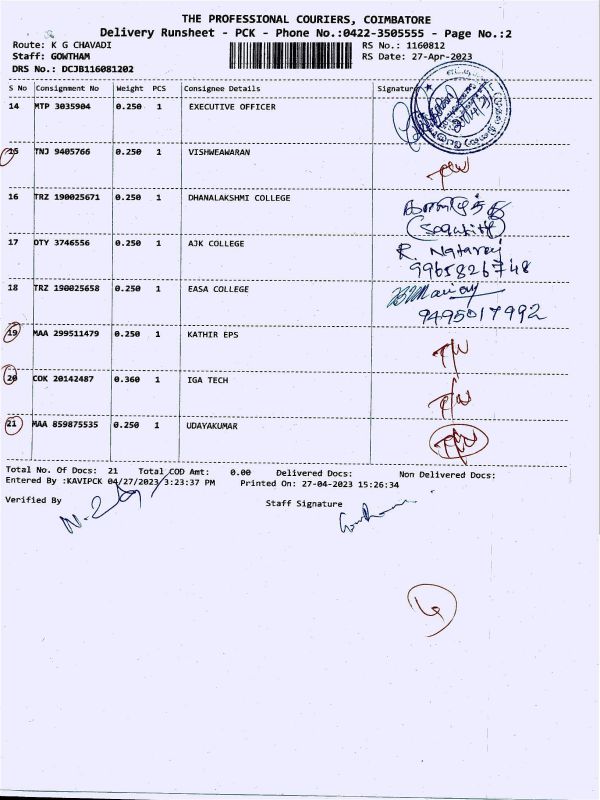 THE PROFESSIONAL COURIERS, COIMBATORE
Delivery Runsheet - PCK - Phone No.:0422-3505555 - Page No.:2
Route: K G CHAVADI RS No.: 1160812
Staff: GOWTHAM RS Date: 27-Apr-2023
DRS No.: DCJB116081202
S No Consignment No Weight PCS Consignee Details Signature
14 MTP 3035904 0.250 1 EXECUTIVE OFFICER
15 TNJ 9405766 0.250 1 VISHWEAWARAN
16 TRZ 190025671 0.250 1 DHANALAKSHMI COLLEGE
17 DTY 3746556 0.250 1 AJK COLLEGE R. Nataraj
9965826748
18 TRZ 190025658 0.250 1 EASA COLLEGE
9495017992
19 MAA 299511479 0.250 1 KATHIR EPS
20 COK 20142487 0.360 1 IGA TECH
21 MAA 859875535 0.250 1 UDAYAKUMAR
Total No. Of Docs: 21 Total COD Amt: 0.00 Delivered Docs: Non Delivered Docs:
Entered By :KAVIPCK 04/27/2023 3:23:37 PM Printed On: 27-04-2023 15:26:34
Verified By Staff Signature